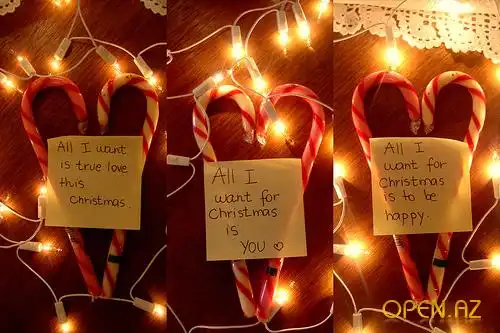 All I want
is true love
this
Christmas.
All I
want for
Christmas
is
YOU ♡
All I
want for
Christmas
is to be
happy.
OPEN.AZ